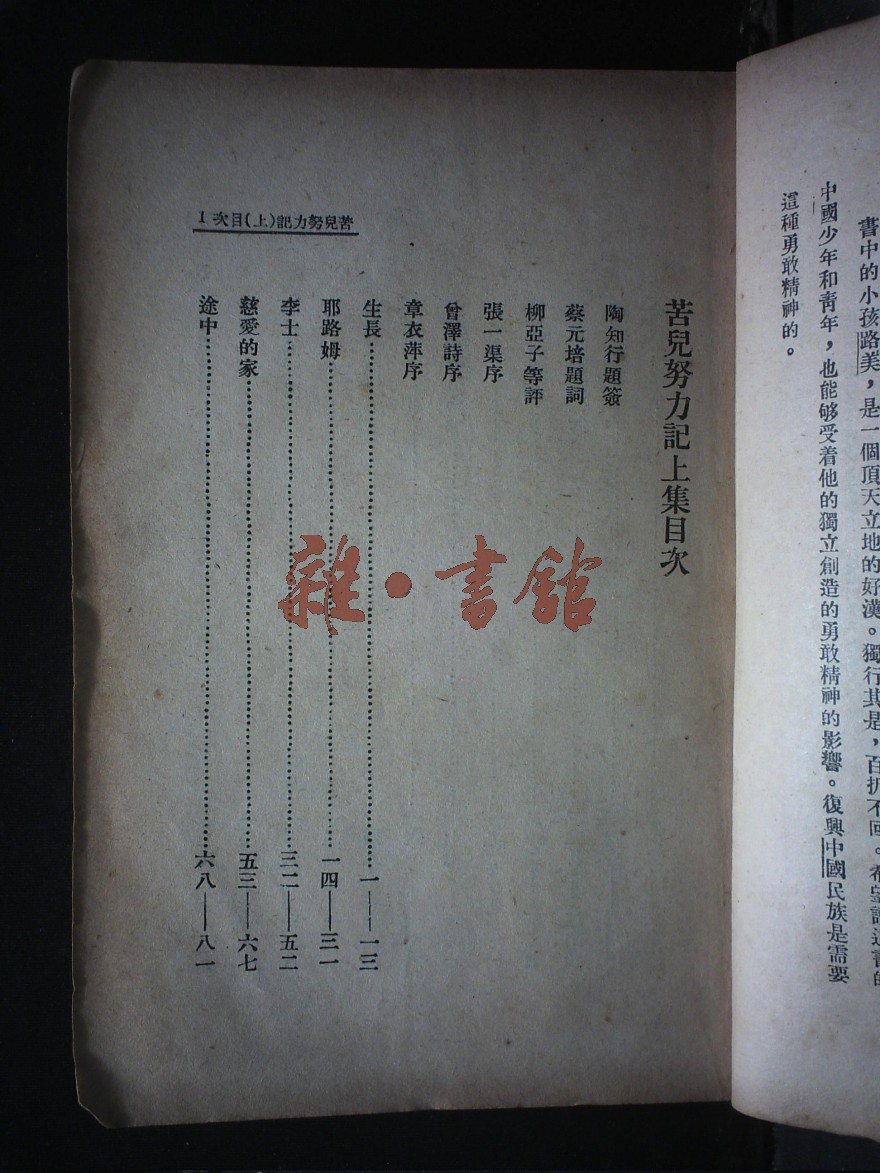 書中的小孩路美，是一個頂天立地的好漢。獨行其是，百折不回。希望讀這書的
中國少年和靑年，也能够受着他的獨立創造的勇敢精神的影響。復興中國民族是需要
這種勇敢精神的。
苦兒努力記上集目次
陶知行題簽
蔡元培題詞
柳亞子等評
張一渠序
曾澤詩序
章衣萍序
生長……一——一三
耶路姆……一四——三一
李士……三二——五二
慈愛的家……五三——六七
途中……六八——八一
1 次目(上)記力努兒苦
雜·書館